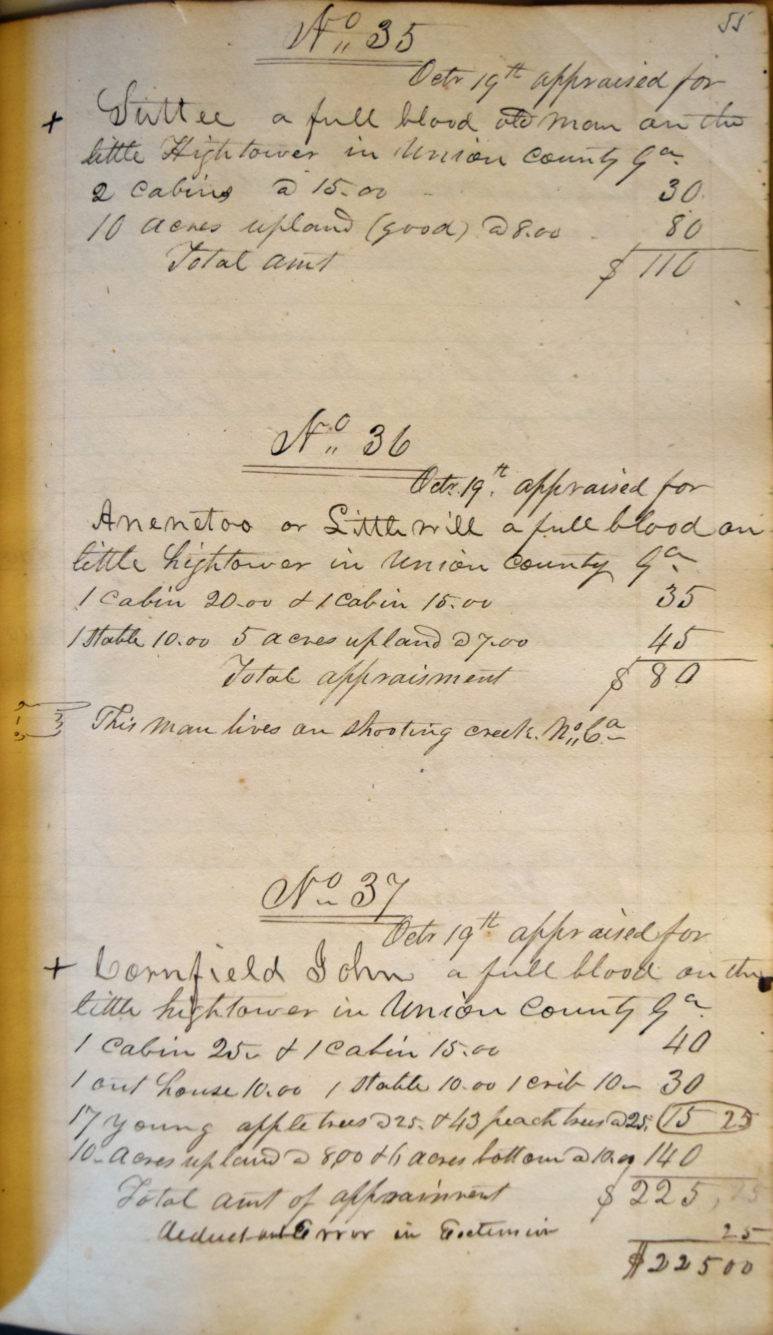 55
No 35
Octr 19th appraised for
+ Suttee a full blood old man on the
little Hightower in Union County Ga
2 cabins @ 15.00 30
10 acres upland (good) @ 8.00 80
Total amt $ 110
No 36
Octr. 19th appraised for
Anenetoo or Littlewill a full blood on
little hightower in Union County Ga
1 cabin 20.00 & 1 cabin 15.00 35
1 stable 10.00 5 acres upland @ 7.00 45
Total appraisment $ 80
This man lives on shooting creek. No Ca
No 37
Octr 19th appraised for
+ Cornfield John a full blood on the
little hightower in Union County Ga
1 cabin 25 & 1 cabin 15.00 40
1 out house 10.00 1 stable 10.00 1 crib 10 30
17 young apple trees @ 25. & 43 peach trees @ 25. 15 25
10 acres upland @ 8.00 & 6 acres bottom @ 10.00 140
Total amt of appraisment $ 225, 25
deduct an Error in Extension 25
$ 225 00